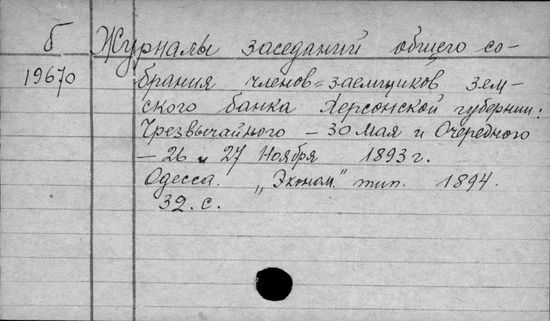 б Журналы заседаний общего со-
19670 брания членов-заемщиков зем-
ского банка Херсонской губернии:
Чрезвычайного — 30 Мая и Очередного
— 26 и 27 Ноября 1893 г.
Одесса. „Эконом." тип. 1894.
32. с.